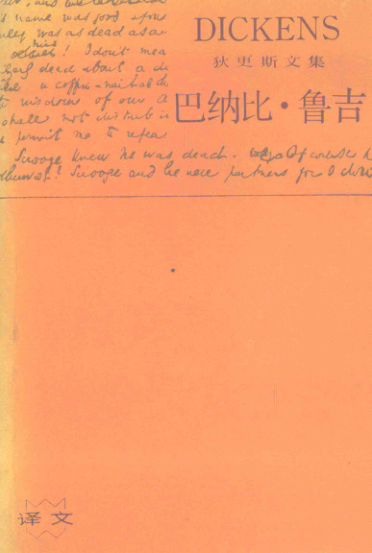 DICKENS
狄更斯文集
巴纳比·鲁吉
name was good upon
ley was as dead as a
! I don't mea
dead about a d
a coffin-nail
wisdom of our a
shall not disturb
permit me to repea
Scrooge knew he was dead. Of course he
! Scrooge and he were partners for I don't
译文